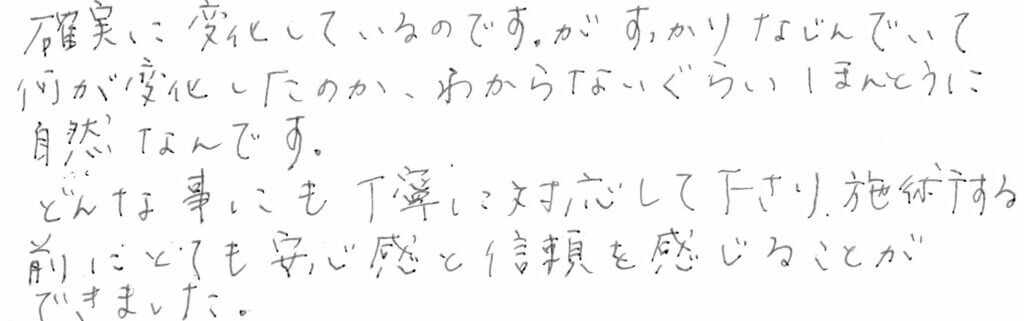 確実に変化しているのです。が すっかりなじんでいて
何が変化したのか、わからないぐらい ほんとうに
自然なんです。
どんな事にも丁寧に対応して下さり、施術する
前にとても安心感と信頼を感じることが
できました。